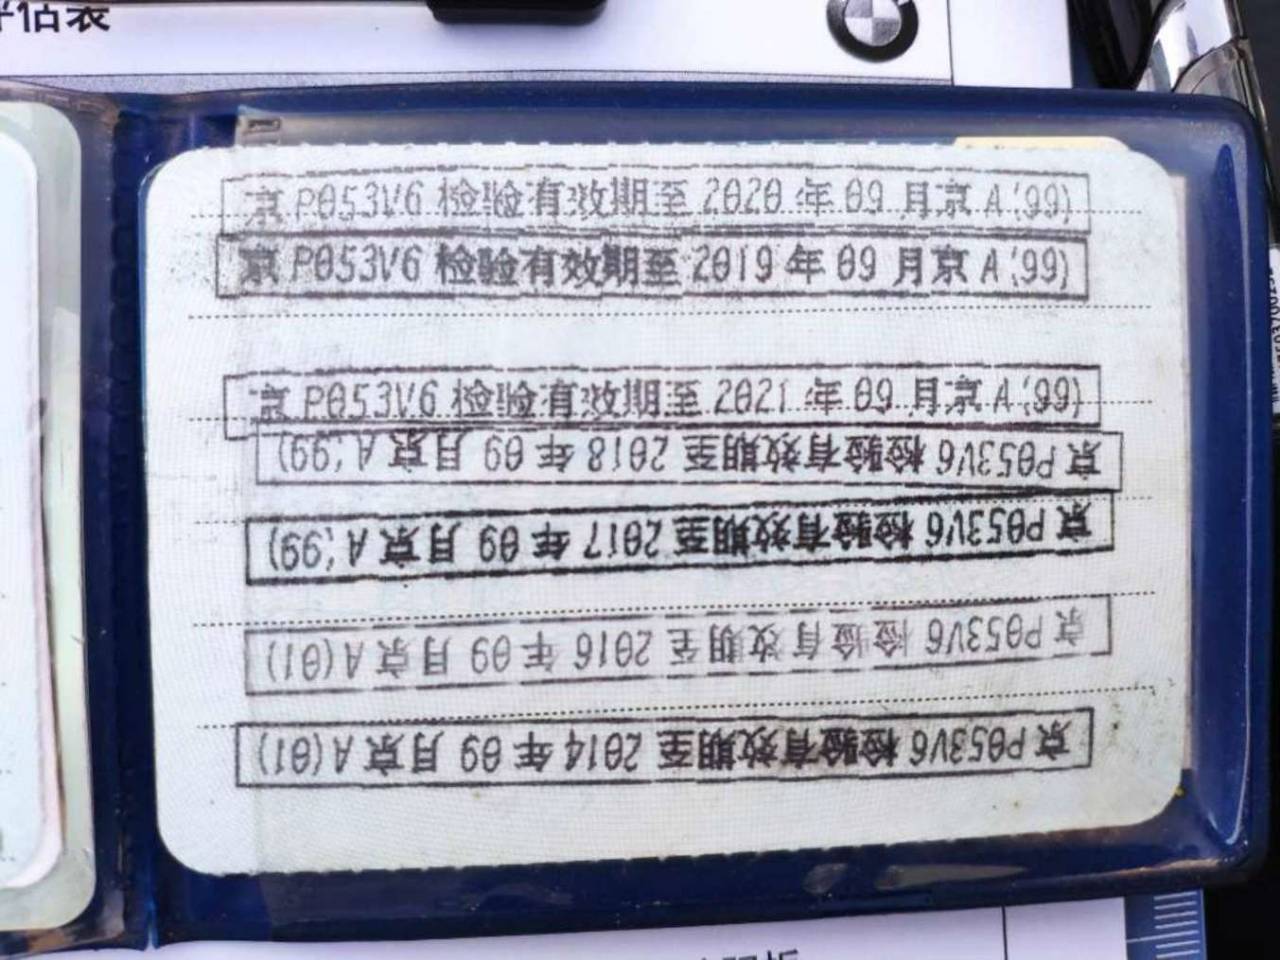 评估表
京 P053V6 检验有效期至 2020 年 09 月京 A(99)
京 P053V6 检验有效期至 2019 年 09 月京 A(99)
京 P053V6 检验有效期至 2021 年 09 月京 A(99)
京 P053V6 检验有效期至 2018 年 09 月京 A(99)
京 P053V6 检验有效期至 2017 年 09 月京 A(99)
京 P053V6 检验有效期至 2016 年 09 月京 A(01)
京 P053V6 检验有效期至 2014 年 09 月京 A(01)